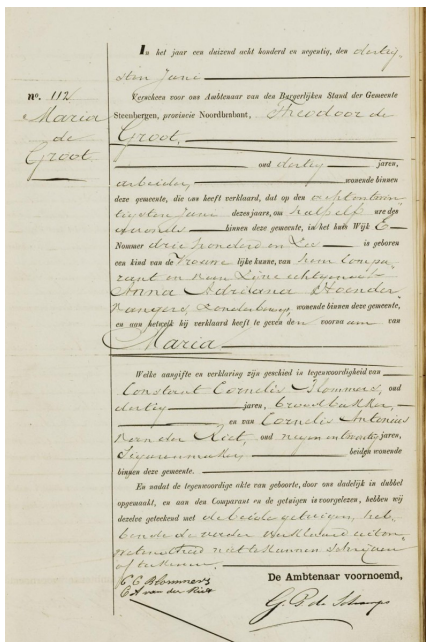 In het jaar een duizend acht honderd en negentig, den dertig
sten Juni
no. 112
Maria
de
Groot
Verscheen voor ons Ambtenaar van den Burgerlijken Stand der Gemeente
Steenbergen, provincie Noordbrabant, Theodoor de
Groot
oud dertig jaren,
arbeider, wonende binnen
deze gemeente, die ons heeft verklaard, dat op den achtentwin
tigsten Juni dezes jaars, om half elf ure des
avonds binnen deze gemeente, in het huis Wijk E
Nommer drie honderd en is geboren
een kind van de vrouwelijke kunne, van hem compa
rant en van zijne echtgenoote
Anna Adriana
zonder beroep, wonende binnen deze gemeente,
en aan hetwelk hij verklaard heeft te geven den voornaam van
Maria
Welke aangifte en verklaring zijn geschied in tegenwoordigheid van
Constant Cornelis Blommers, oud
dertig jaren, broodbakker,
en van Cornelis Antonius
van der Riet, oud negen en twintig jaren,
sigarenmaker, beiden wonende
binnen deze gemeente.
En nadat de tegenwoordige akte van geboorte, door ons dadelijk in dubbel
opgemaakt, en aan den Comparant en de getuigen is voorgelezen, hebben wij
dezelve geteekend met de beide getuigen, heb
bende de vader verklaard uit on
wetendheid niet te kunnen schrijven
of teekenen.
C C Blommers
C A van der Riet
De Ambtenaar voornoemd,